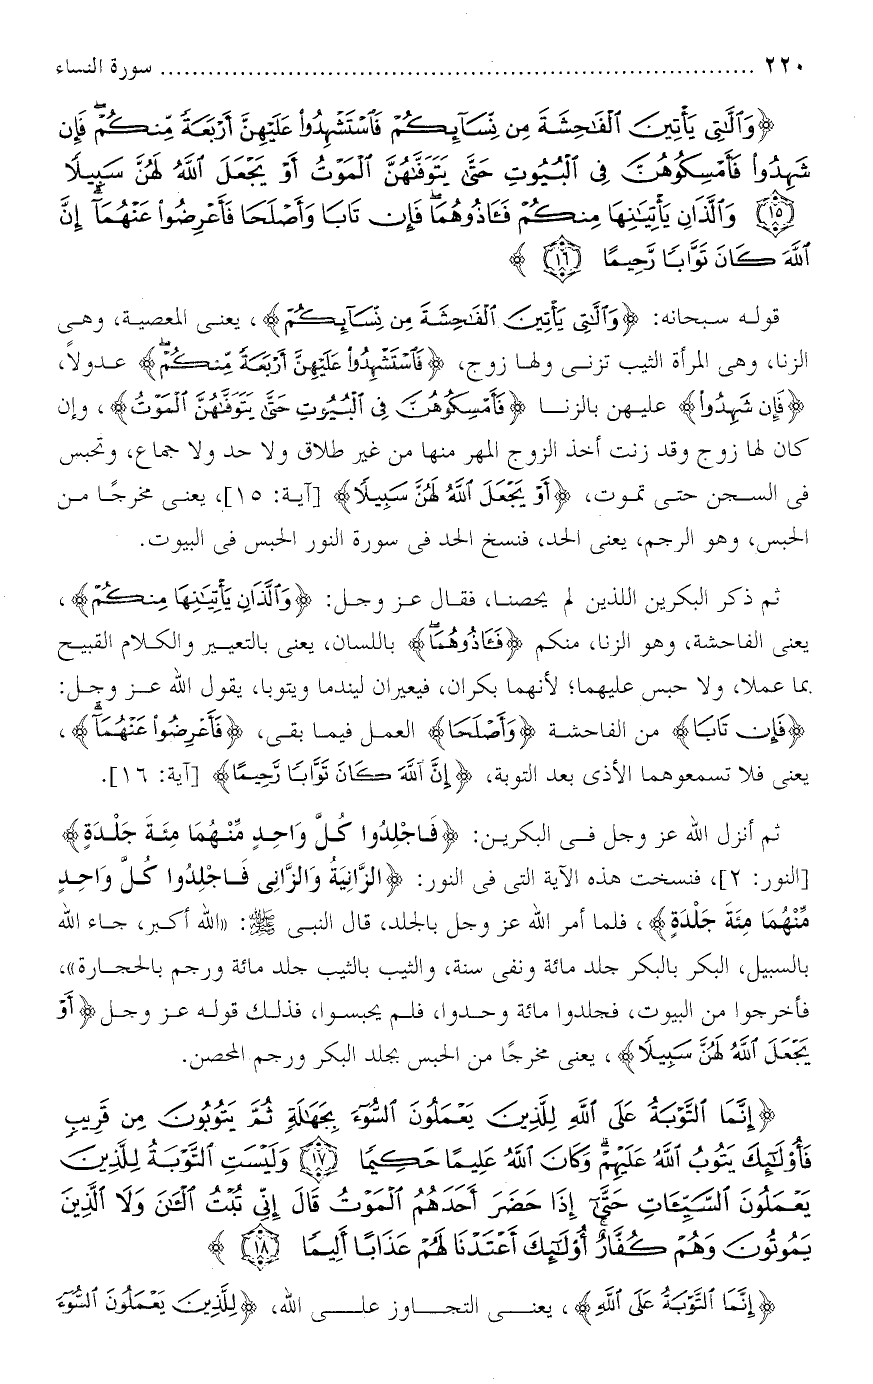 ٢٢٠ ........................................................................ سورة النساء
﴿وَٱلَّٰتِى يَأْتِينَ ٱلْفَٰحِشَةَ مِن نِّسَآئِكُمْ فَٱسْتَشْهِدُوا۟ عَلَيْهِنَّ أَرْبَعَةً مِّنكُمْ ۖ فَإِن
شَهِدُوا۟ فَأَمْسِكُوهُنَّ فِى ٱلْبُيُوتِ حَتَّىٰ يَتَوَفَّىٰهُنَّ ٱلْمَوْتُ أَوْ يَجْعَلَ ٱللَّهُ لَهُنَّ سَبِيلًا
﴿١٥﴾ وَٱلَّذَانِ يَأْتِيَٰنِهَا مِنكُمْ فَـَٔاذُوهُمَا ۖ فَإِن تَابَا وَأَصْلَحَا فَأَعْرِضُوا۟ عَنْهُمَآ ۗ إِنَّ
ٱللَّهَ كَانَ تَوَّابًا رَّحِيمًا ﴿١٦﴾ ﴾
قوله سبحانه: ﴿وَٱلَّٰتِى يَأْتِينَ ٱلْفَٰحِشَةَ مِن نِّسَآئِكُمْ﴾، يعنى المعصية، وهى
الزنا، وهى المرأة الثيب تزنى ولها زوج، ﴿فَٱسْتَشْهِدُوا۟ عَلَيْهِنَّ أَرْبَعَةً مِّنكُمْ ۖ﴾ عدولاً،
﴿فَإِن شَهِدُوا۟﴾ عليهن بالزنا ﴿فَأَمْسِكُوهُنَّ فِى ٱلْبُيُوتِ حَتَّىٰ يَتَوَفَّىٰهُنَّ ٱلْمَوْتُ﴾، وإن
كان لها زوج وقد زنت أخذ الزوج المهر منها من غير طلاق ولا حد ولا جماع، وتحبس
فى السجن حتى تموت، ﴿أَوْ يَجْعَلَ ٱللَّهُ لَهُنَّ سَبِيلًا﴾ [آية: ١٥]، يعنى مخرجًا من
الحبس، وهو الرجم، يعنى الحد، فنسخ الحد فى سورة النور الحبس فى البيوت.
ثم ذكر البكرين اللذين لم يحصنا، فقال عز وجل: ﴿وَٱلَّذَانِ يَأْتِيَٰنِهَا مِنكُمْ﴾،
يعنى الفاحشة، وهو الزنا، منكم ﴿فَـَٔاذُوهُمَا ۖ﴾ باللسان، يعنى بالتعيير والكلام القبيح
بما عملا، ولا حبس عليهما؛ لأنهما بكران، فيعيران ليندما ويتوبا، يقول الله عز وجل:
﴿فَإِن تَابَا﴾ من الفاحشة ﴿وَأَصْلَحَا﴾ العمل فيما بقى، ﴿فَأَعْرِضُوا۟ عَنْهُمَآ ۗ﴾،
يعنى فلا تسمعوهما الأذى بعد التوبة، ﴿إِنَّ ٱللَّهَ كَانَ تَوَّابًا رَّحِيمًا﴾ [آية: ١٦].
ثم أنزل الله عز وجل فى البكرين: ﴿فَاجْلِدُوا كُلَّ وَاحِدٍ مِّنْهُمَا مِئَةَ جَلْدَةٍ﴾
[النور: ٢]، فنسخت هذه الآية التى فى النور: ﴿الزَّانِيَةُ وَالزَّانِى فَاجْلِدُوا كُلَّ وَاحِدٍ
مِّنْهُمَا مِئَةَ جَلْدَةٍ﴾، فلما أمر الله عز وجل بالجلد، قال النبى ﷺ: «الله أكبر، جاء الله
بالسبيل، البكر بالبكر جلد مائة ونفى سنة، والثيب بالثيب جلد مائة ورجم بالحجارة»،
فأخرجوا من البيوت، فجلدوا مائة وحدوا، فلم يحبسوا، فذلك قوله عز وجل ﴿أَوْ
يَجْعَلَ ٱللَّهُ لَهُنَّ سَبِيلًا﴾، يعنى مخرجًا من الحبس بجلد البكر ورجم المحصن.
﴿إِنَّمَا ٱلتَّوْبَةُ عَلَى ٱللَّهِ لِلَّذِينَ يَعْمَلُونَ ٱلسُّوٓءَ بِجَهَٰلَةٍ ثُمَّ يَتُوبُونَ مِن قَرِيبٍ
فَأُو۟لَٰٓئِكَ يَتُوبُ ٱللَّهُ عَلَيْهِمْ ۗ وَكَانَ ٱللَّهُ عَلِيمًا حَكِيمًا ﴿١٧﴾ وَلَيْسَتِ ٱلتَّوْبَةُ لِلَّذِينَ
يَعْمَلُونَ ٱلسَّيِّـَٔاتِ حَتَّىٰٓ إِذَا حَضَرَ أَحَدَهُمُ ٱلْمَوْتُ قَالَ إِنِّى تُبْتُ ٱلْـَٰٔنَ وَلَا ٱلَّذِينَ
يَمُوتُونَ وَهُمْ كُفَّارٌ ۚ أُو۟لَٰٓئِكَ أَعْتَدْنَا لَهُمْ عَذَابًا أَلِيمًا ﴿١٨﴾ ﴾
﴿إِنَّمَا ٱلتَّوْبَةُ عَلَى ٱللَّهِ﴾، يعنى التجاوز على الله، ﴿لِلَّذِينَ يَعْمَلُونَ ٱلسُّوٓءَ